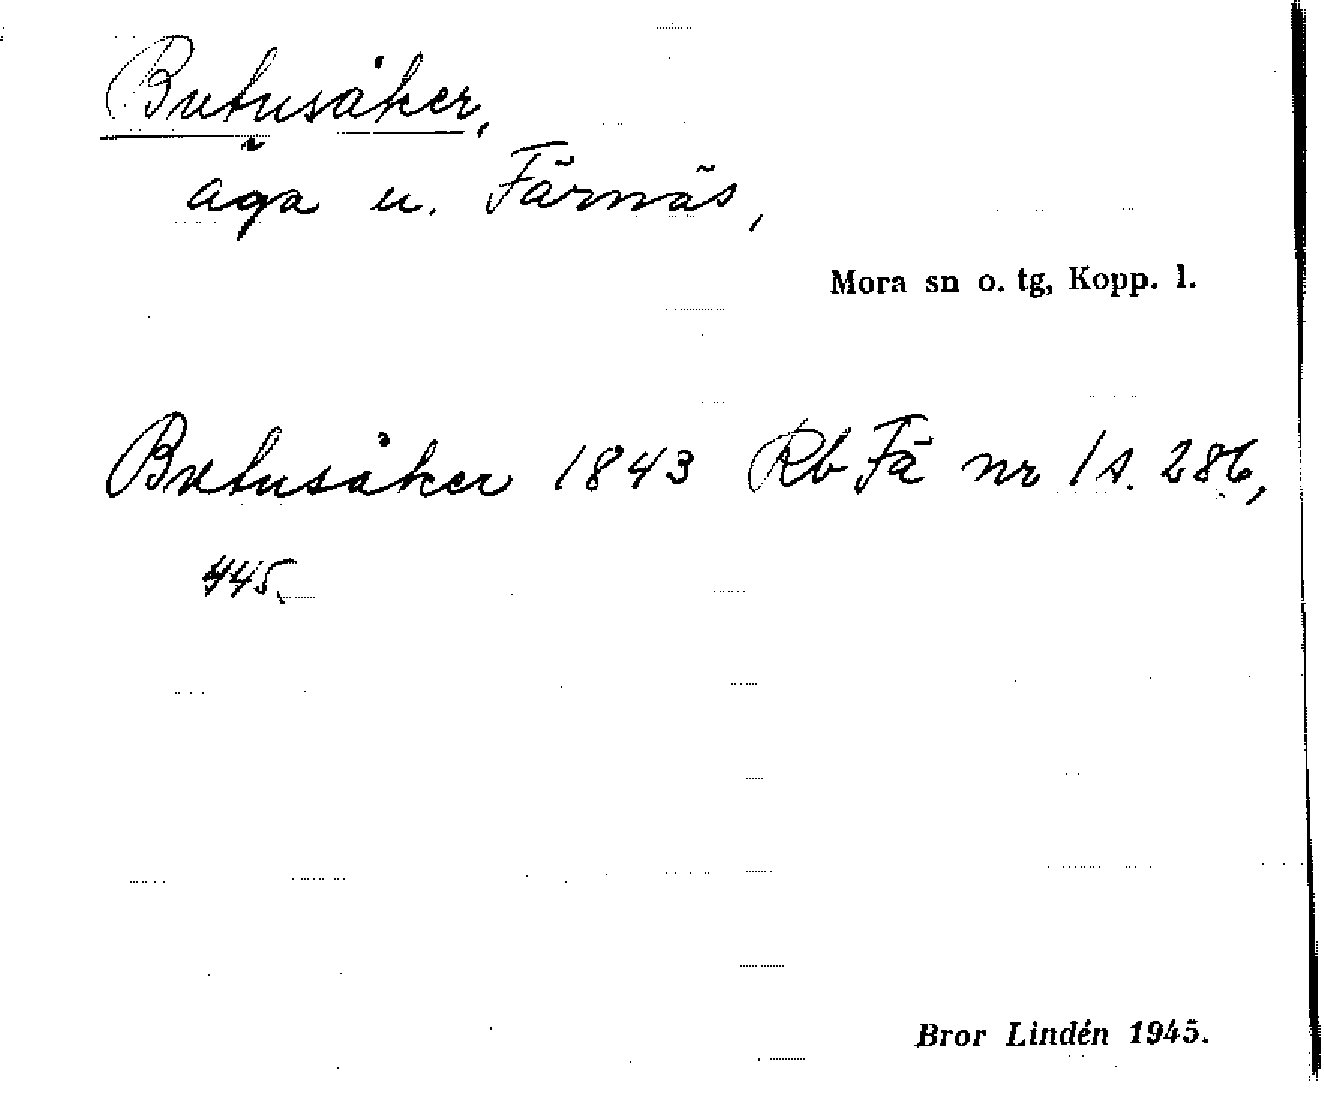 Butusåker,
äga u. Färnäs,
Mora sn o. tg, Kopp. l.
Butusåker 1843 Rb Fä nr 1 s. 286,
445.
Bror Lindén 1945.